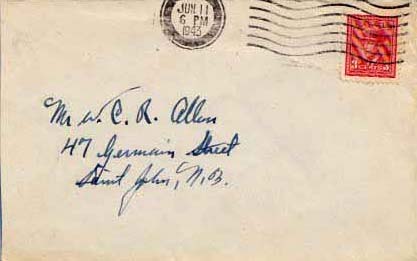 JUN 11
6 PM
1943
3 CENTS 3
Mr W. C. R. Allen
47 Germain Street
Saint John, N.B.